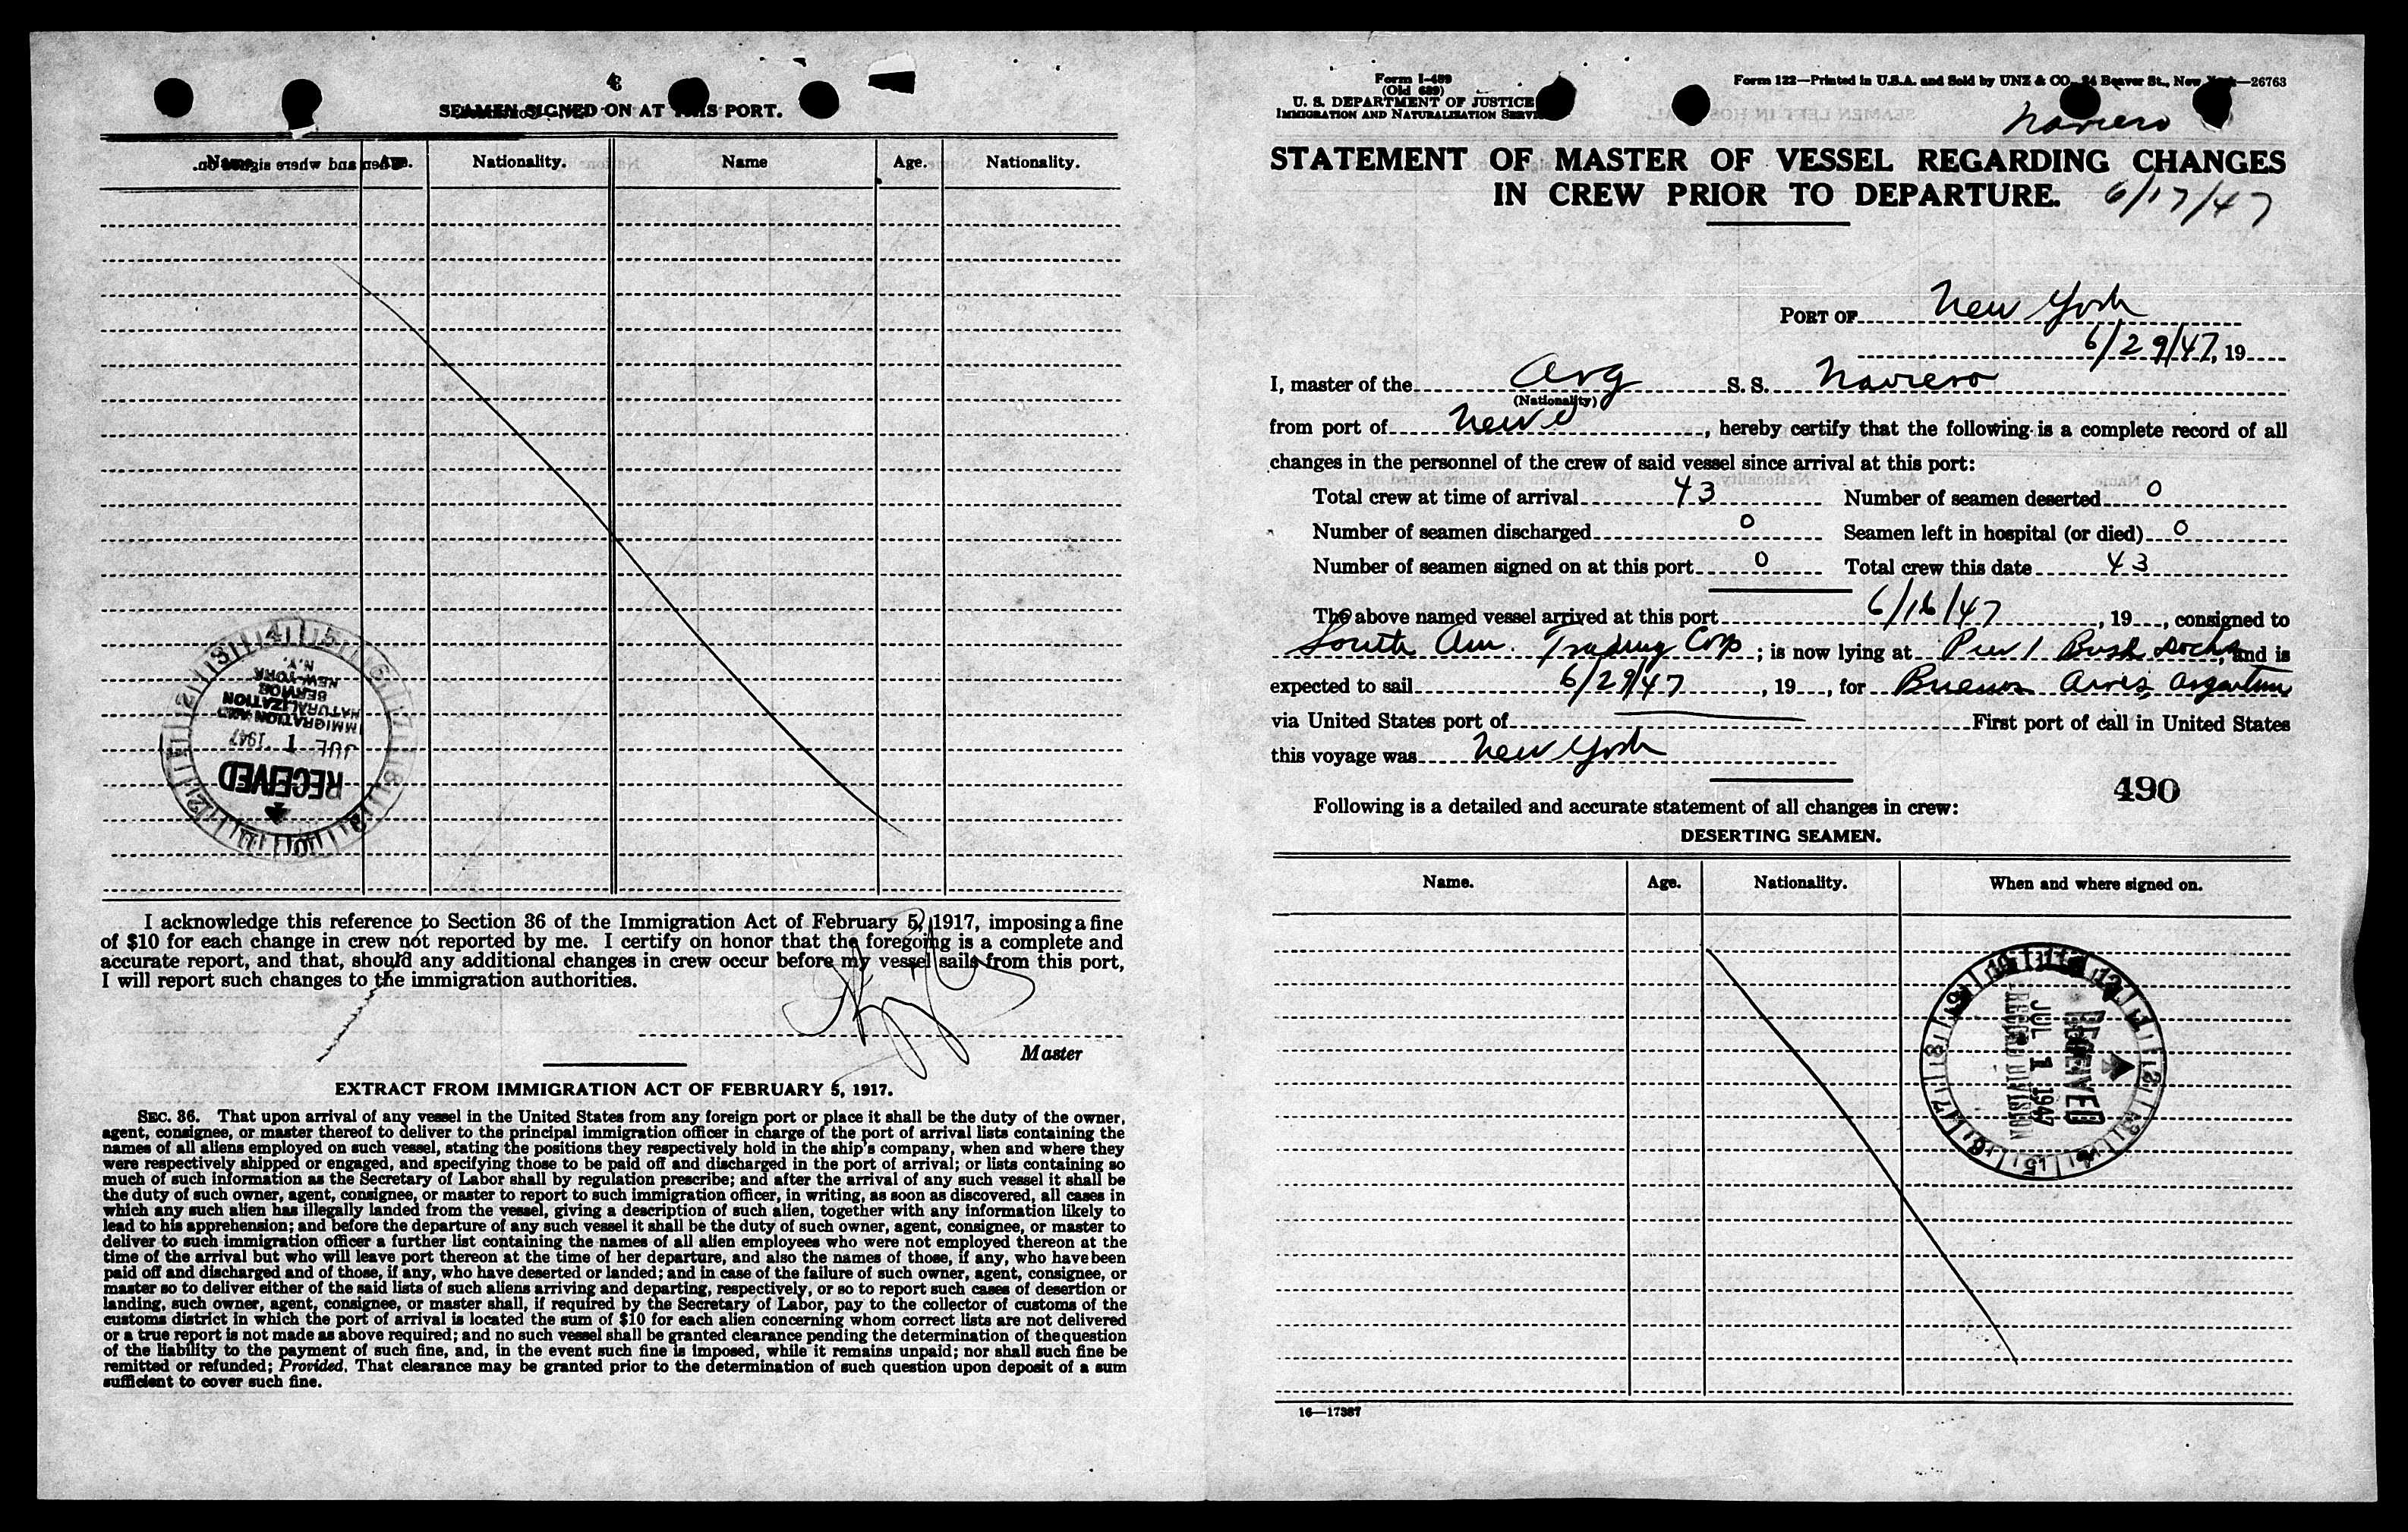 4
SEAMEN SIGNED ON AT THIS PORT.
Name Age. Nationality. Name Age. Nationality.
14 15 16
N.Y.
NEW YORK
SERVICE
NATURALIZATION
IMMIGRATION AND
JUL 1 1947
RECEIVED
I acknowledge this reference to Section 36 of the Immigration Act of February 5, 1917, imposing a fine
of $10 for each change in crew not reported by me. I certify on honor that the foregoing is a complete and
accurate report, and that, should any additional changes in crew occur before my vessel sails from this port,
I will report such changes to the immigration authorities.
Master
EXTRACT FROM IMMIGRATION ACT OF FEBRUARY 5, 1917.
SEC. 36. That upon arrival of any vessel in the United States from any foreign port or place it shall be the duty of the owner,
agent, consignee, or master thereof to deliver to the principal immigration officer in charge of the port of arrival lists containing the
names of all aliens employed on such vessel, stating the positions they respectively hold in the ship's company, when and where they
were respectively shipped or engaged, and specifying those to be paid off and discharged in the port of arrival; or lists containing so
much of such information as the Secretary of Labor shall by regulation prescribe; and after the arrival of any such vessel it shall be
the duty of such owner, agent, consignee, or master to report to such immigration officer, in writing, as soon as discovered, all cases in
which any such alien has illegally landed from the vessel, giving a description of such alien, together with any information likely to
lead to his apprehension; and before the departure of any such vessel it shall be the duty of such owner, agent, consignee, or master to
deliver to such immigration officer a further list containing the names of all alien employees who were not employed thereon at the
time of the arrival but who will leave port thereon at the time of her departure, and also the names of those, if any, who have been
paid off and discharged and of those, if any, who have deserted or landed; and in case of the failure of such owner, agent, consignee, or
master so to deliver either of the said lists of such aliens arriving and departing, respectively, or so to report such cases of desertion or
landing, such owner, agent, consignee, or master shall, if required by the Secretary of Labor, pay to the collector of customs of the
customs district in which the port of arrival is located the sum of $10 for each alien concerning whom correct lists are not delivered
or a true report is not made as above required; and no such vessel shall be granted clearance pending the determination of the question
of the liability to the payment of such fine, and, in the event such fine is imposed, while it remains unpaid; nor shall such fine be
remitted or refunded; Provided, That clearance may be granted prior to the determination of such question upon deposit of a sum
sufficient to cover such fine.
Form I-489
(Old 689)
U. S. DEPARTMENT OF JUSTICE
IMMIGRATION AND NATURALIZATION SERVICE
Form 122—Printed in U.S.A. and Sold by UNZ & CO., 24 Beaver St., New York—26763
Naviero
STATEMENT OF MASTER OF VESSEL REGARDING CHANGES
IN CREW PRIOR TO DEPARTURE.
6/17/47
PORT OF New York
6/29/47, 19
I, master of the Arg S. S. Naviero
(Nationality)
from port of New, hereby certify that the following is a complete record of all
changes in the personnel of the crew of said vessel since arrival at this port:
Total crew at time of arrival 43 Number of seamen deserted 0
Number of seamen discharged 0 Seamen left in hospital (or died) 0
Number of seamen signed on at this port 0 Total crew this date 43
The above named vessel arrived at this port 6/16/47, 19, consigned to
South Am. Trading Corp; is now lying at Pier 1 Bush Docks, and is
expected to sail 6/29/47, 19, for Buenos Aires, Argentina
via United States port of First port of call in United States
this voyage was New York
490
Following is a detailed and accurate statement of all changes in crew:
DESERTING SEAMEN.
Name. Age. Nationality. When and where signed on.
RECEIVED
JUL 1 1947
RECORD DIVISION
16—17387